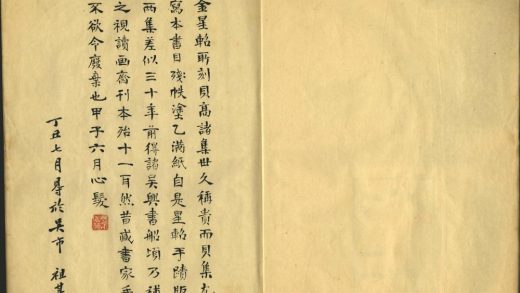 金星軺所刻貝高諸集世久稱貴而貝集尤
寫本書目殘帙塗乙滿紙自是星軺手蹟版
兩集差似三十年前得諸吳興書船頃乃補
之視讀画齋刊本殆十一耳然昔藏書家手
不欲令廢棄也甲子六月心髮
丁丑七月㝵於吳市 祖